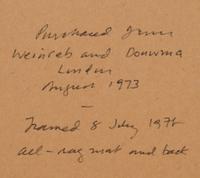 Purchased from
Weinreb and Douwma
London
August 1973
—
Framed 8 July 197
all-rag mat and back